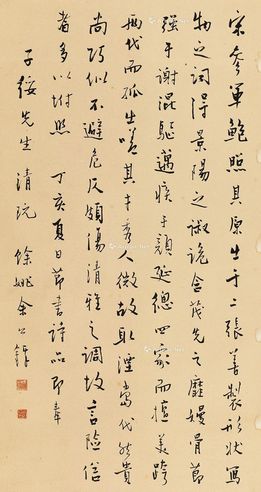 宋參軍鮑照其原出于二張善製形狀寫
物之詞得景陽之諔詭含茂先之靡嫚骨節
強于謝混驅邁疾于顏延總四家而擅美跨
兩代而孤出嗟其才秀人微故取湮當代然貴
尚巧似不避危仄頗傷清雅之調故言險俗
者多以附照 丁亥夏日節書詩品即奉
子綏先生清玩 餘姚余